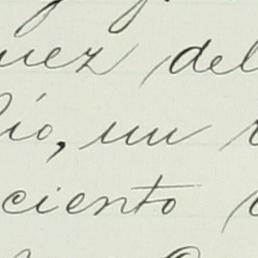 uez del
io, un
ciento